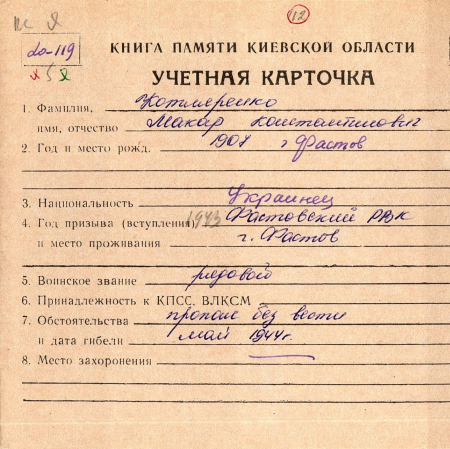 12
До-119
КНИГА ПАМЯТИ КИЕВСКОЙ ОБЛАСТИ
УЧЕТНАЯ КАРТОЧКА
1. Фамилия,
имя, отчество Макар Константинович
2. Год и место рожд. 1907 г Фастов
3. Национальность Украинец
4. Год призыва (вступления) 1943 Фастовский РВК
и место проживания г. Фастов
5. Воинское звание рядовой
6. Принадлежность к КПСС, ВЛКСМ
7. Обстоятельства пропал без вести
и дата гибели май 1944г.
8. Место захоронения